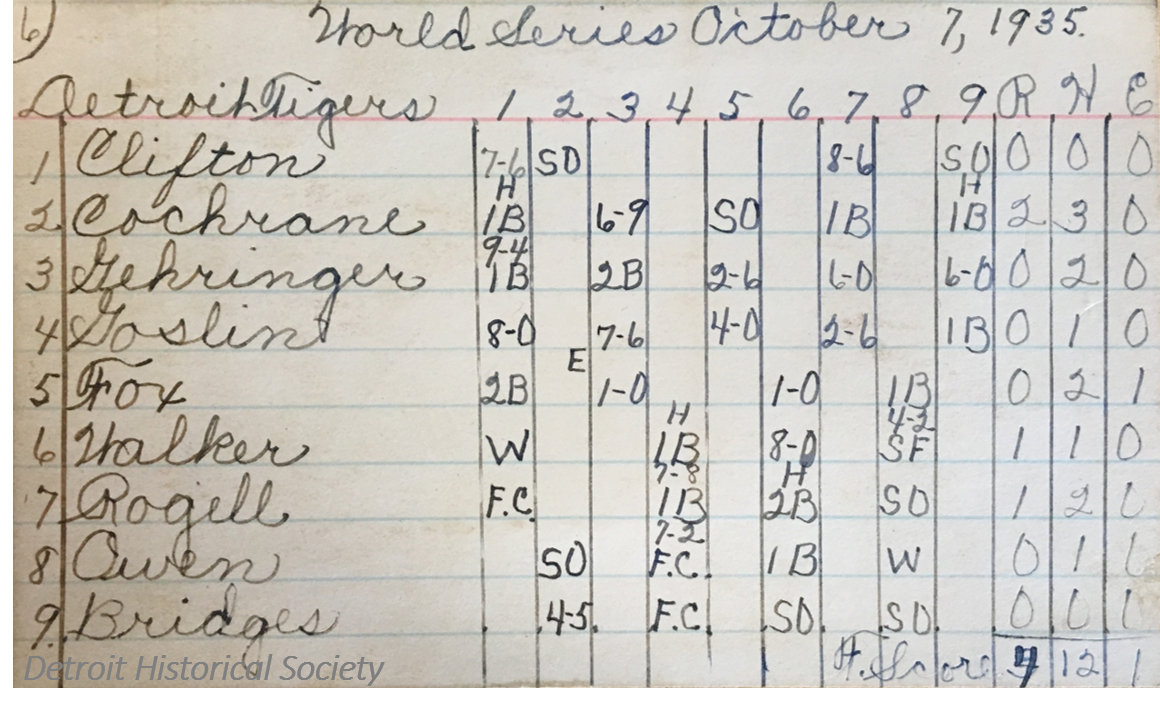 6) World Series October 7, 1935.
Detroit Tigers 1 2 3 4 5 6 7 8 9 R H E
1 Clifton 7-6 SO 8-6 SO 0 0 0
H H
2 Cochrane 1B 6-9 SO 1B 1B 2 3 0
9-4
3 Gehringer 1B 2B 2-6 6-0 6-0 0 2 0
4 Goslin 8-0 7-6 4-0 2-6 1B 0 1 0
E
5 Fox 2B 1-0 1-0 1B 0 2 1
H 4-2
6 Walker W 1B 8-0 SF 1 1 0
7-8 H
7 Rogell F.C. 1B 2B SO 1 2 0
7-2
8 Owen SO F.C. 1B W 0 1 0
9. Bridges 4-5 F.C. SO SO 0 0 0
F. Score 4 12 1
Detroit Historical Society